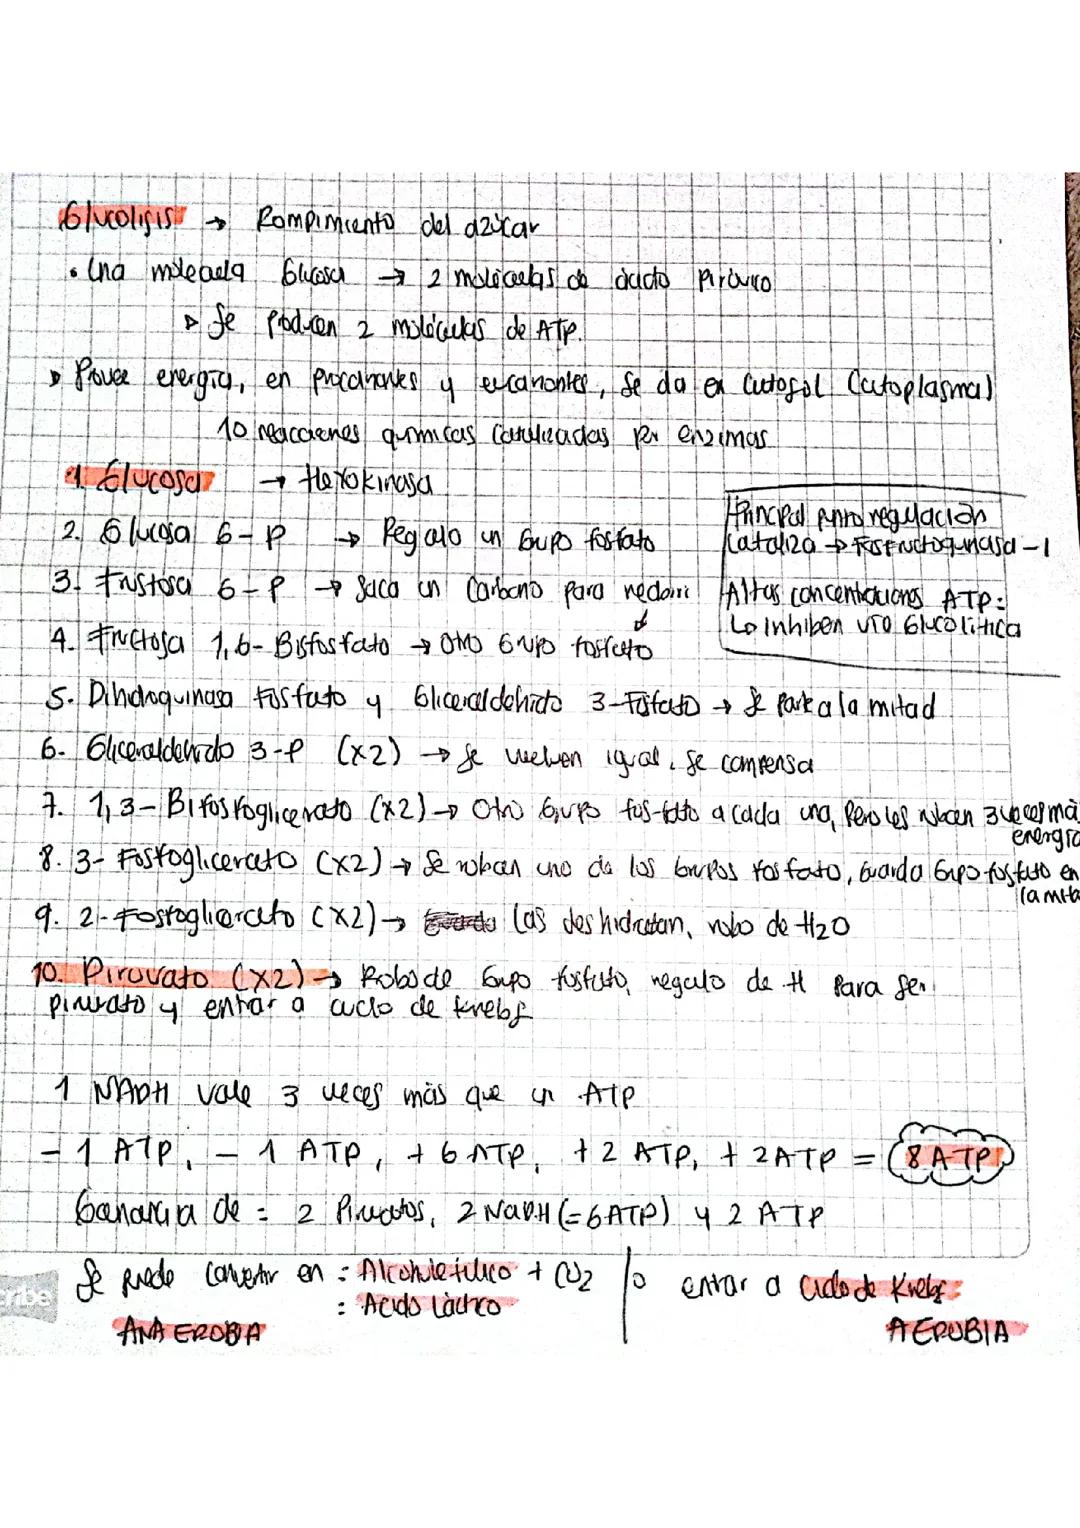 Glucolisis → Rompimiento del azúcar
• Una molecula Glucosa → 2 moléculas de ácido Pirúvico
▹ Se producen 2 moléculas de ATP.
▹ Provee energía, en procariontes y eucariontes, se da en Citosol (citoplasma)
10 reacciones químicas catalizadas por enzimas
1. Glucosa → Hexokinasa
2. Glucosa 6-P → Regalo un Grupo fosfato
3. Frustosa 6-P → Saca un Carbono para recibir
4. Fructosa 1,6-Bisfosfato → Otro Grupo fosfato
Principal punto regulación
Cataliza → Fosfructoquinasa-1
Altas concentraciones ATP:
↳ Inhiben vía Glucolítica
5. Dihidroquinasa fosfato y Gliceraldehido 3-Fosfato → Se parte a la mitad
6. Gliceraldehido 3-P (x2) → Se vuelven igual, se compensa
7. 1,3-Bifosfoglicerato (x2) → Otro Grupo fosfato a cada una, Pero les roban 3 veces más
energía
8. 3-Fosfoglicerato (x2) → Se roban uno de los Grupos fosfato, Guarda Grupo fosfato en
la mita
9. 2-Fosfoglicerato (x2) → las deshidratan, robo de H2O
10. Piruvato (x2) → Robo de Grupo fosfato, regalo de H Para ser
piruvato y entrar a ciclo de Krebs
1 NADH vale 3 veces más que un ATP
- 1 ATP, - 1 ATP, + 6 ATP, + 2 ATP, + 2ATP = 8 ATP
Ganancia de = 2 Piruvatos, 2 NADH (=6ATP) y 2 ATP
Se puede convertir en : Alcohol etílico + CO2 / o entrar a Ciclo de Krebs
: Acido Láctico
ANAEROBIA AEROBIA
cribe